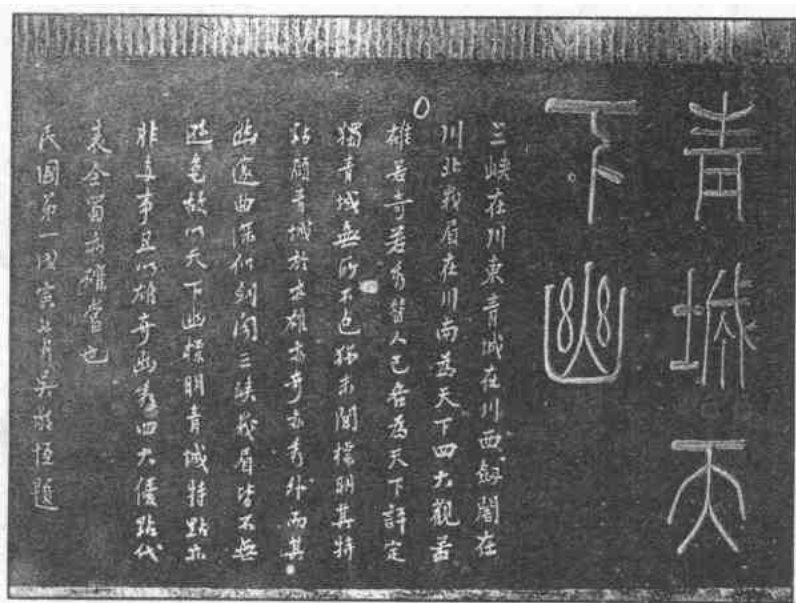 青城天
下幽
三峽在川東青城在川西劔閣在
川北峩眉在川南為天下四大觀若
雄若奇若秀昔人已各為天下評定
獨青城無所不包猶未聞標明其特
點顧青城於亦雄亦奇亦秀外而其
幽邃曲深似劍閣三峽峩眉皆不無
遜色故以天下幽標明青城特點亦
非多事且以雄奇幽秀四大優點代
表全蜀亦確當也
民國第一戊寅七月吳敬恆題